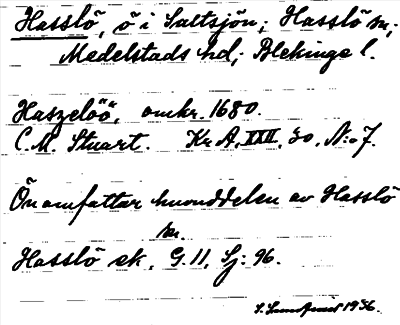 Hasslö, ö i Saltsjön; Hasslö sn;
Medelstads hd; Blekinge l.
Haszelöö, omkr. 1680.
C. M. Stuart. Kr A, XXII, 30, N:o 7.
Ön omfattar huvuddelen av Hasslö
sn.
Hasslö sk. G. 11, Sj: 96.
1936.